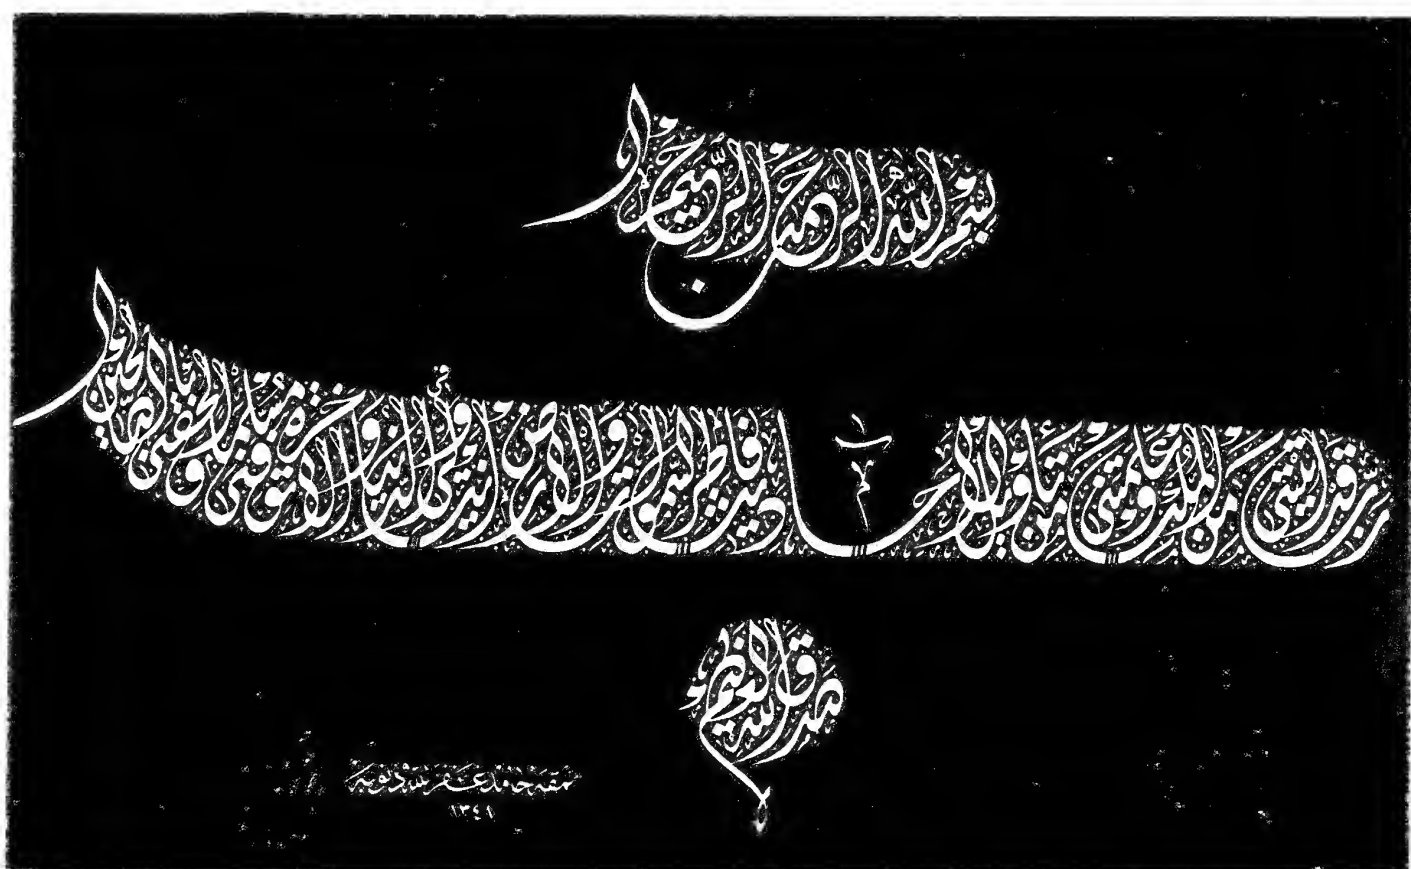 بسم الله الرحمن الرحيم
رب قد آتيتني من الملك وعلمتني من تأويل الأحاديث فاطر السموات والأرض أنت وليي في الدنيا والآخرة توفني مسلما وألحقني بالصالحين
صدق الله العظيم
نمقه حامد غفر الله ذنوبه
١٣٤١